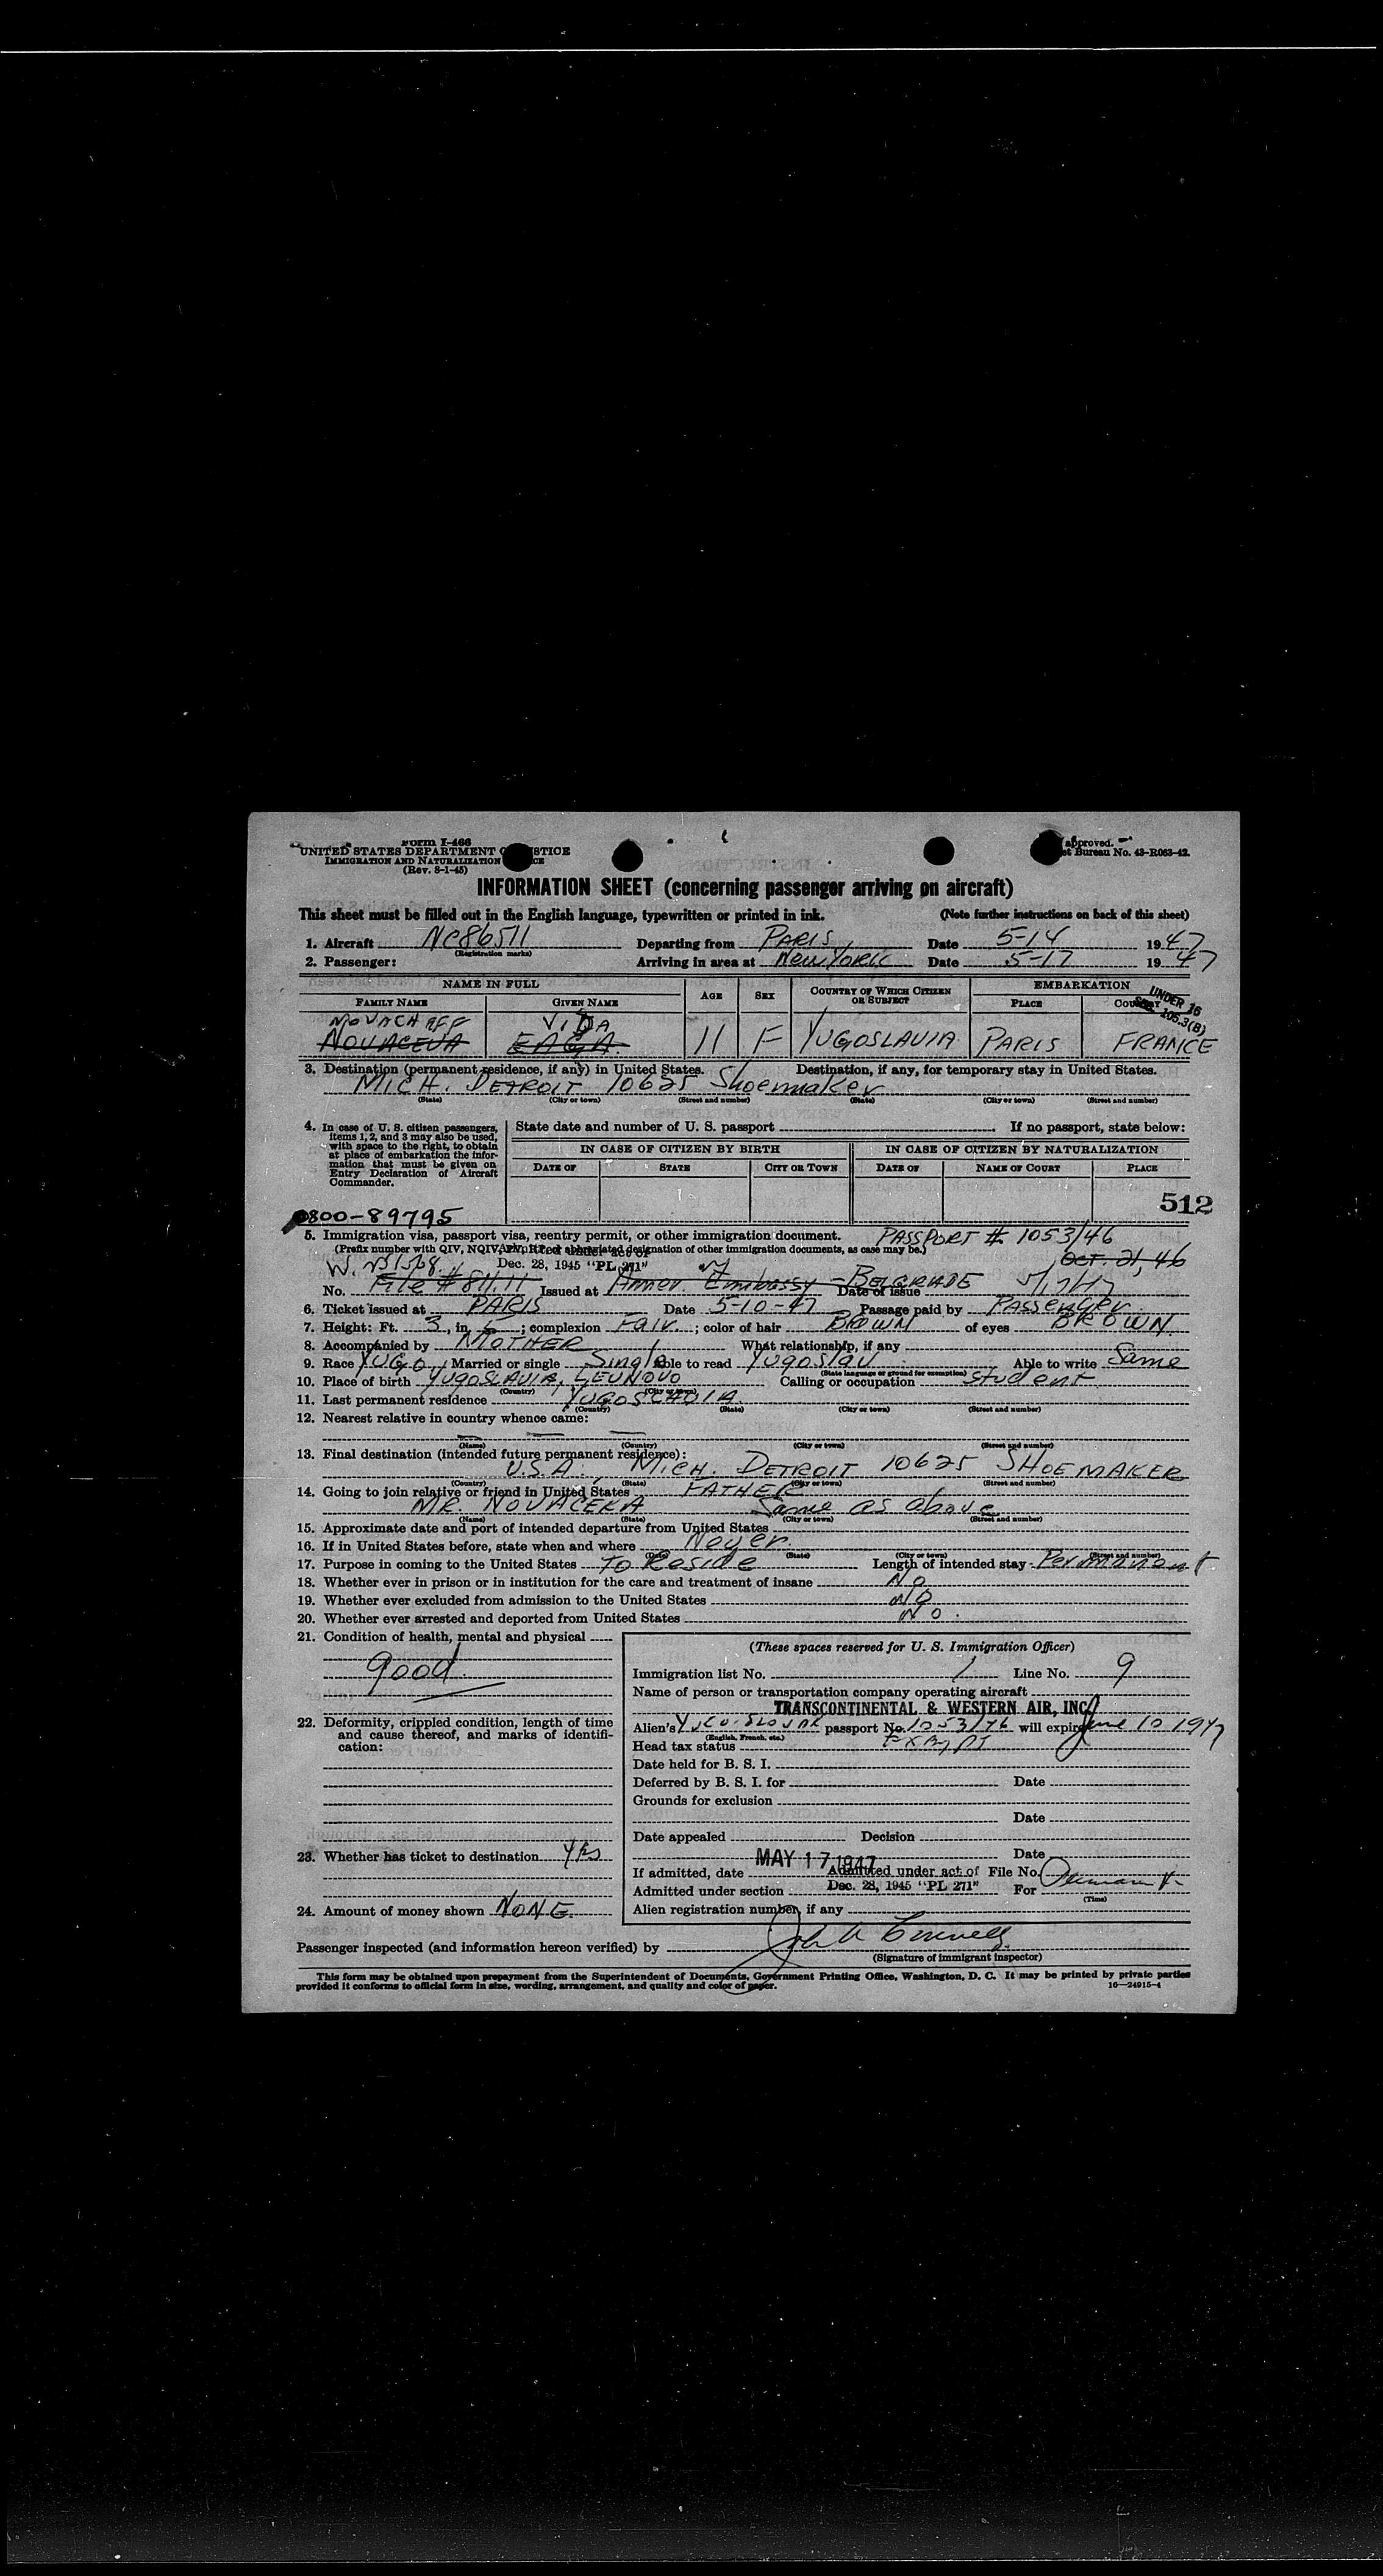 Form I-466
UNITED STATES DEPARTMENT OF JUSTICE
IMMIGRATION AND NATURALIZATION SERVICE
(Rev. 8-1-45)
approved.
et Bureau No. 43-R063-42.
INFORMATION SHEET (concerning passenger arriving on aircraft)
This sheet must be filled out in the English language, typewritten or printed in ink. (Note further instructions on back of this sheet)
1. Aircraft NC86511 Departing from PARIS Date 5-14 1947
(Registration marks)
2. Passenger: Arriving in area at New YORK Date 5-17 1947
NAME IN FULL AGE SEX COUNTRY OF WHICH CITIZEN OR SUBJECT EMBARKATION
FAMILY NAME GIVEN NAME PLACE COUNTRY
UNDER 16
SEC. 105.3(B)
NOVACHEFF VIDA
NOVACEVA EAGA 11 F YUGOSLAVIA PARIS FRANCE
3. Destination (permanent residence, if any) in United States. Destination, if any, for temporary stay in United States.
MICH. DETROIT 10625 Shoemaker
(State) (City or town) (Street and number) (State) (City or town) (Street and number)
4. In case of U. S. citizen passengers, items 1, 2, and 3 may also be used, with space to the right, to obtain at place of embarkation the information that must be given on Entry Declaration of Aircraft Commander.
State date and number of U. S. passport If no passport, state below:
IN CASE OF CITIZEN BY BIRTH IN CASE OF CITIZEN BY NATURALIZATION
DATE OF STATE CITY OR TOWN DATE OF NAME OF COURT PLACE
512
0800-89795
5. Immigration visa, passport visa, reentry permit, or other immigration document. PASSPORT # 1053/46
(Prefix number with QIV, NQIV, PV, RP or abbreviated designation of other immigration documents, as case may be.) Oct. 21, 46
Dec. 28, 1945 "PL 271"
No. File # 811.11 Issued at Amer. Embassy - BELGRADE Date of issue
6. Ticket issued at PARIS Date 5-10-47 Passage paid by PASSENGER
7. Height: Ft. 3, in. 5; complexion Fair; color of hair BROWN of eyes BROWN
8. Accompanied by MOTHER What relationship, if any
9. Race YUGO. Married or single Single Able to read Yugoslav Able to write Same
(State language or ground for exemption)
10. Place of birth YUGOSLAVIA, LEUNOVO Calling or occupation Student
(Country) (City or town)
11. Last permanent residence YUGOSLAVIA
(Country) (State) (City or town) (Street and number)
12. Nearest relative in country whence came:
(Name) (Country) (City or town) (Street and number)
13. Final destination (intended future permanent residence):
U.S.A. MICH. DETROIT 10625 SHOEMAKER
(Country) (State) (City or town) (Street and number)
14. Going to join relative or friend in United States FATHER
MR. NOVACEKA Same as above
(Name) (State) (City or town) (Street and number)
15. Approximate date and port of intended departure from United States
16. If in United States before, state when and where Never
(Date) (State) (City or town) (Street and number)
17. Purpose in coming to the United States To Reside Length of intended stay Permanent
18. Whether ever in prison or in institution for the care and treatment of insane No
19. Whether ever excluded from admission to the United States NO
20. Whether ever arrested and deported from United States No.
21. Condition of health, mental and physical
good.
22. Deformity, crippled condition, length of time and cause thereof, and marks of identification:
23. Whether has ticket to destination yes
24. Amount of money shown NONE
(These spaces reserved for U. S. Immigration Officer)
Immigration list No. 1 Line No. 9
Name of person or transportation company operating aircraft
TRANSCONTINENTAL & WESTERN AIR, INC.
Alien's passport No. 1053/46 will expire June 10 1947
(English, French, etc.)
Head tax status
Date held for B. S. I.
Deferred by B. S. I. for Date
Grounds for exclusion
Date
Date appealed Decision
Date
If admitted, date MAY 17 1947 Admitted under act of File No.
Admitted under section Dec. 28, 1945 "PL 271" For
(Time)
Alien registration number, if any
Passenger inspected (and information hereon verified) by
(Signature of immigrant inspector)
This form may be obtained upon prepayment from the Superintendent of Documents, Government Printing Office, Washington, D. C. It may be printed by private parties
provided it conforms to official form in size, wording, arrangement, and quality and color of paper. 16—24915-4